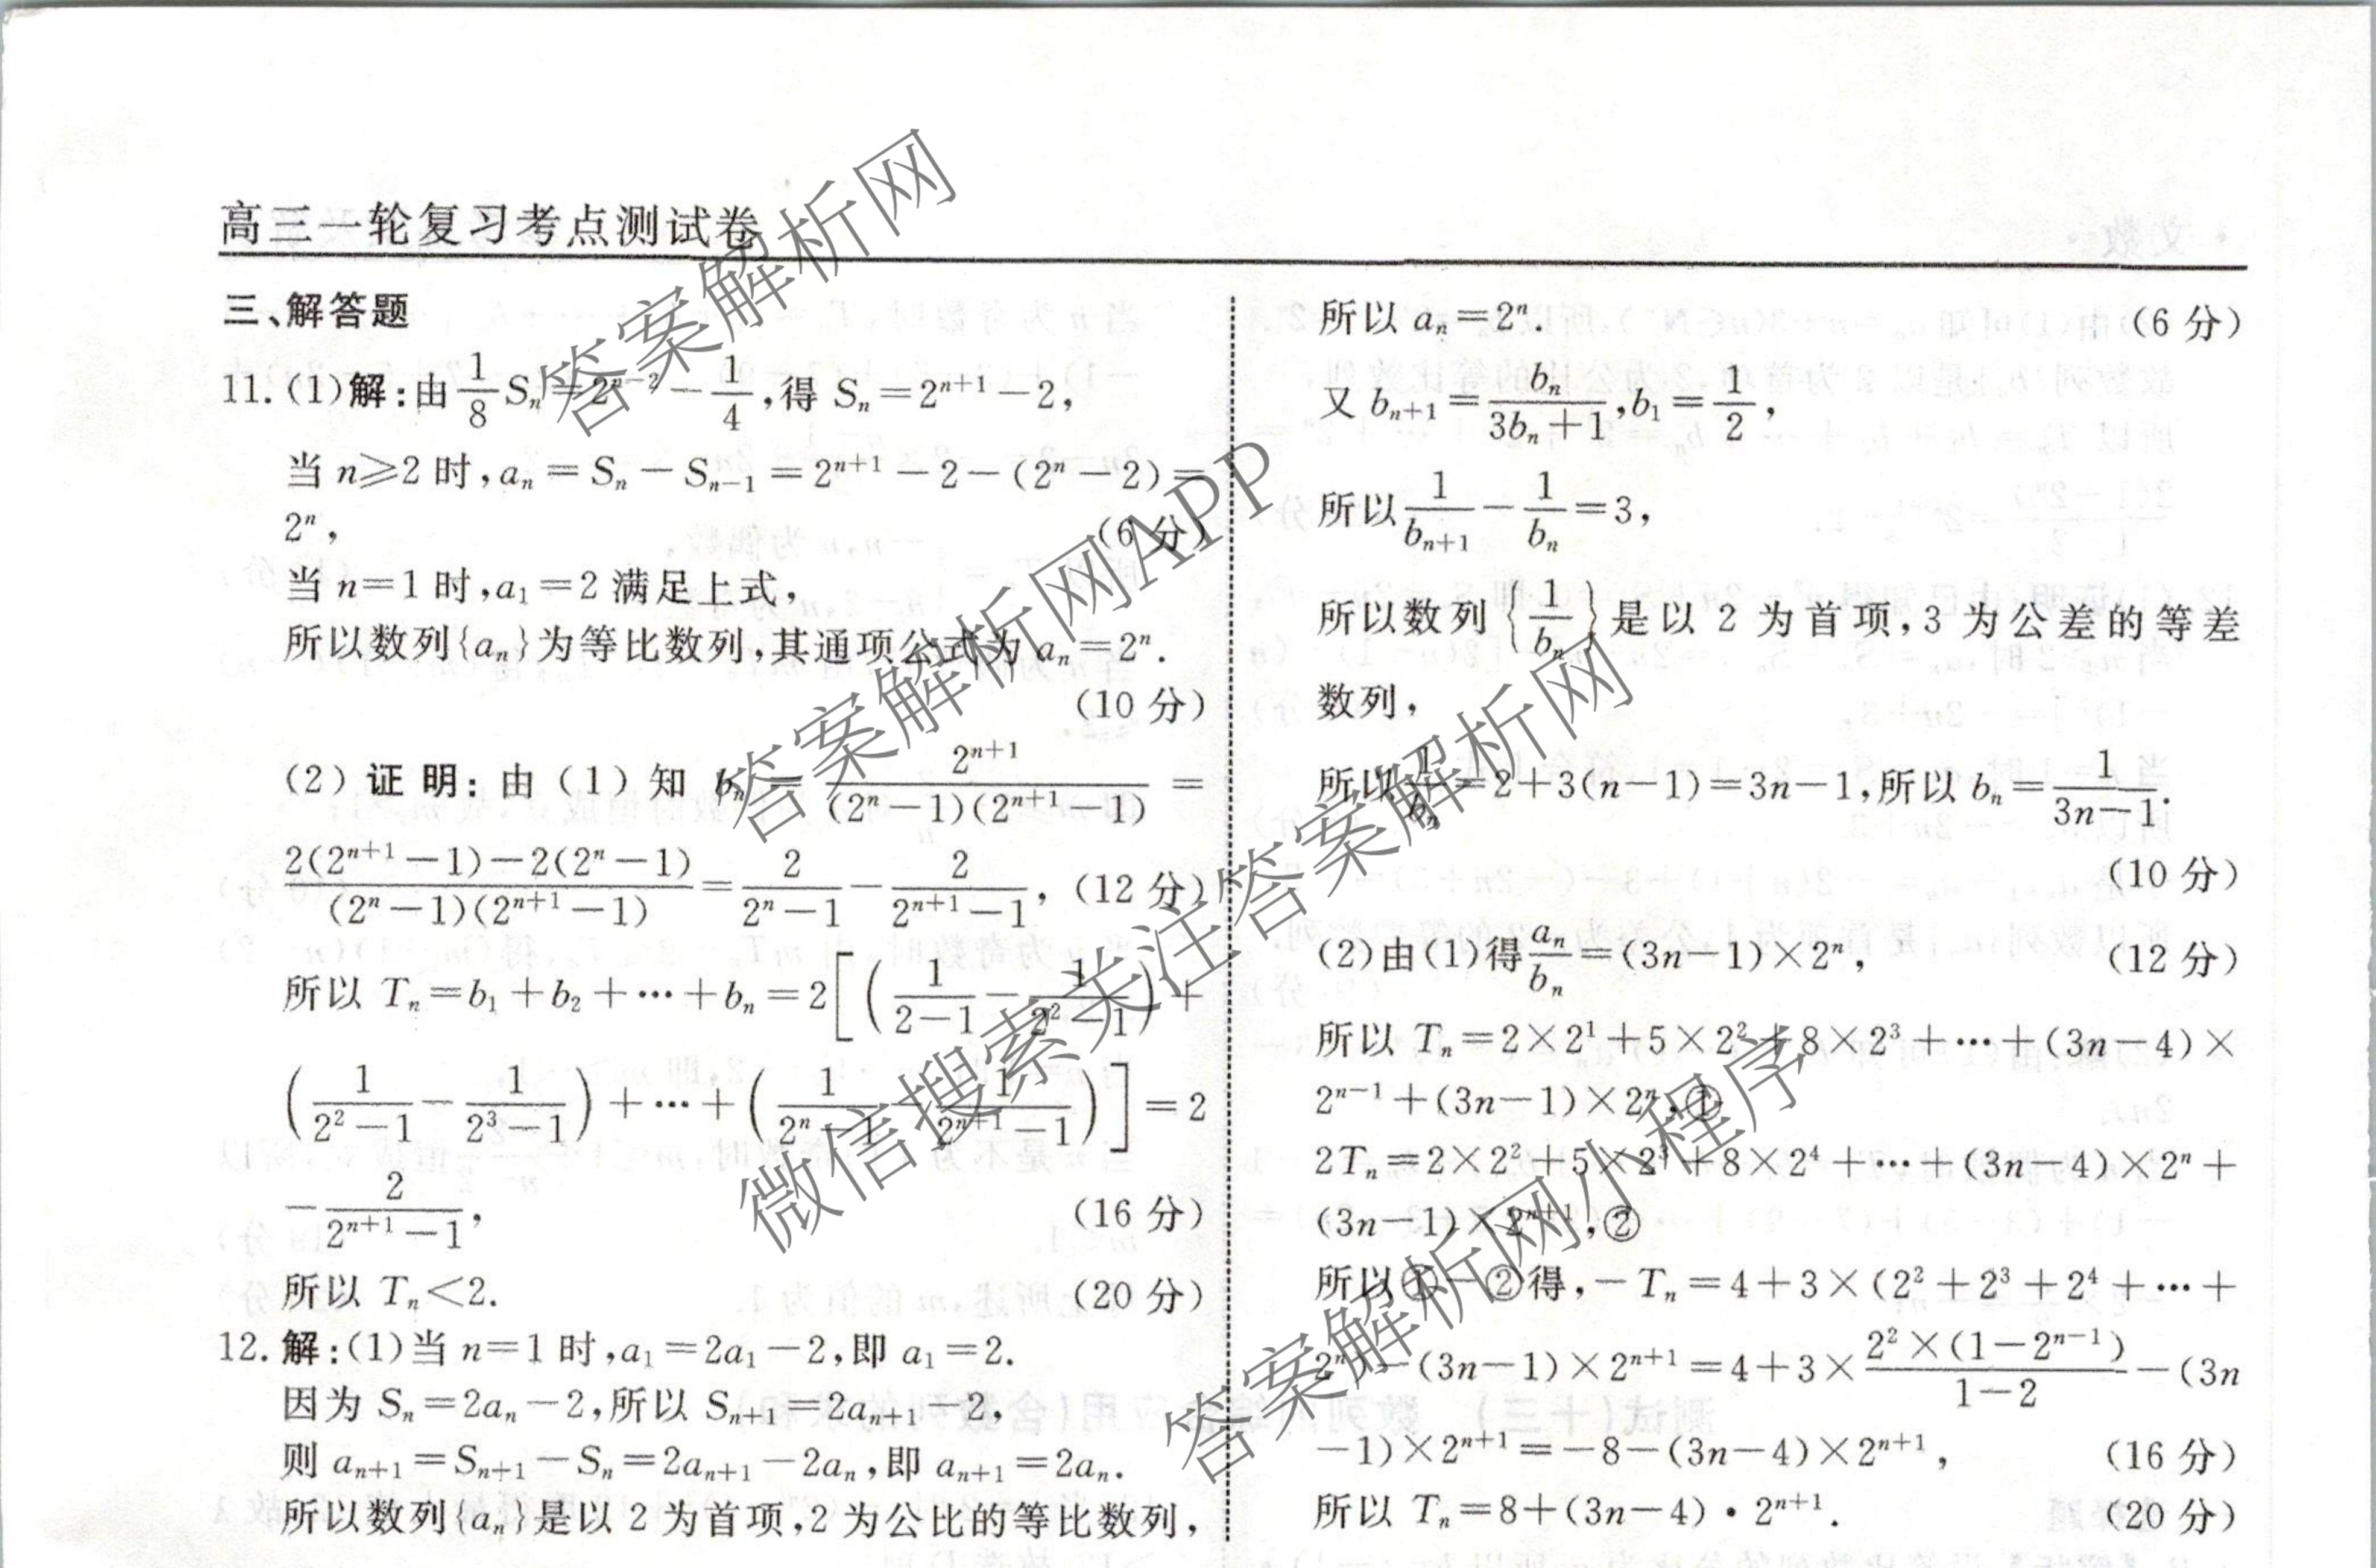 高三一轮复习考点测试卷
三、解答题
11. (1)解:由 1/8 Sₙ=2ⁿ⁻²-1/4,得 Sₙ=2ⁿ⁺¹-2,
当 n≥2 时,aₙ=Sₙ-Sₙ₋₁=2ⁿ⁺¹-2-(2ⁿ-2)=
2ⁿ, (6 分)
当 n=1 时,a₁=2 满足上式,
所以数列{aₙ}为等比数列,其通项公式为 aₙ=2ⁿ.
(10 分)
(2) 证明: 由 (1) 知 bₙ = 2ⁿ⁺¹/((2ⁿ-1)(2ⁿ⁺¹-1)) =
(2(2ⁿ⁺¹-1)-2(2ⁿ-1))/((2ⁿ-1)(2ⁿ⁺¹-1))=2/(2ⁿ-1)-2/(2ⁿ⁺¹-1), (12 分)
所以 Tₙ=b₁+b₂+…+bₙ=2[(1/(2-1)-1/(2²-1))+
(1/(2²-1)-1/(2³-1))+…+(1/(2ⁿ-1)-1/(2ⁿ⁺¹-1))]=2
-2/(2ⁿ⁺¹-1), (16 分)
所以 Tₙ<2. (20 分)
12. 解:(1)当 n=1 时,a₁=2a₁-2,即 a₁=2.
因为 Sₙ=2aₙ-2,所以 Sₙ₊₁=2aₙ₊₁-2,
则 aₙ₊₁=Sₙ₊₁-Sₙ=2aₙ₊₁-2aₙ,即 aₙ₊₁=2aₙ.
所以数列{aₙ}是以 2 为首项,2 为公比的等比数列,
所以 aₙ=2ⁿ. (6 分)
又 bₙ₊₁=bₙ/(3bₙ+1),b₁=1/2,
所以 1/bₙ₊₁-1/bₙ=3,
所以数列{1/bₙ}是以 2 为首项,3 为公差的等差
数列,
所以 1/bₙ=2+3(n-1)=3n-1,所以 bₙ=1/(3n-1).
(10 分)
(2)由(1)得 aₙ/bₙ=(3n-1)×2ⁿ, (12 分)
所以 Tₙ=2×2¹+5×2²+8×2³+…+(3n-4)×
2ⁿ⁻¹+(3n-1)×2ⁿ,①
2Tₙ=2×2²+5×2³+8×2⁴+…+(3n-4)×2ⁿ+
(3n-1)×2ⁿ⁺¹,②
所以①-②得,-Tₙ=4+3×(2²+2³+2⁴+…+
2ⁿ)-(3n-1)×2ⁿ⁺¹=4+3×(2²×(1-2ⁿ⁻¹))/(1-2)-(3n
-1)×2ⁿ⁺¹=-8-(3n-4)×2ⁿ⁺¹, (16 分)
所以 Tₙ=8+(3n-4)·2ⁿ⁺¹. (20 分)
答案解析网
答案解析网APP
微信搜索关注答案解析网
答案解析网小程序